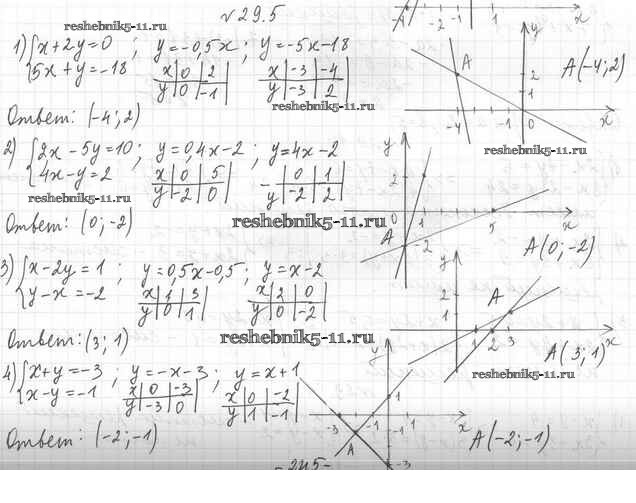 № 29.5
reshebnik5-11.ru
1) {x+2y=0 ; y=-0,5x ; y=-5x-18
5x+y=-18 x|0|2 x|-3|-4
y|0|-1 y|-3|2
reshebnik5-11.ru
Ответ: (-4; 2)
y
A
2
1
-4 -1 0 x
A(-4; 2)
reshebnik5-11.ru
2) {2x-5y=10 ; y=0,4x-2 ; y=4x-2
4x-y=2 x|0|5 |0|1
y|-2|0 y|-2|2
reshebnik5-11.ru
Ответ: (0; -2)
reshebnik5-11.ru
y
2
0 1 5 x
A -2
A(0; -2)
3) {x-2y=1 ; y=0,5x-0,5 ; y=x-2
y-x=-2 x|1|3 x|2|0
y|0|1 y|0|-2
Ответ: (3; 1)
reshebnik5-11.ru
y
2
1 A
1 2 3 x
A(3; 1)
reshebnik5-11.ru
4) {x+y=-3 ; y=-x-3 ; y=x+1
x-y=-1 x|0|-3 x|0|-2
y|-3|0 y|1|-1
Ответ: (-2; -1)
y
1
-3 -1 1 x
A -3
A(-2; -1)